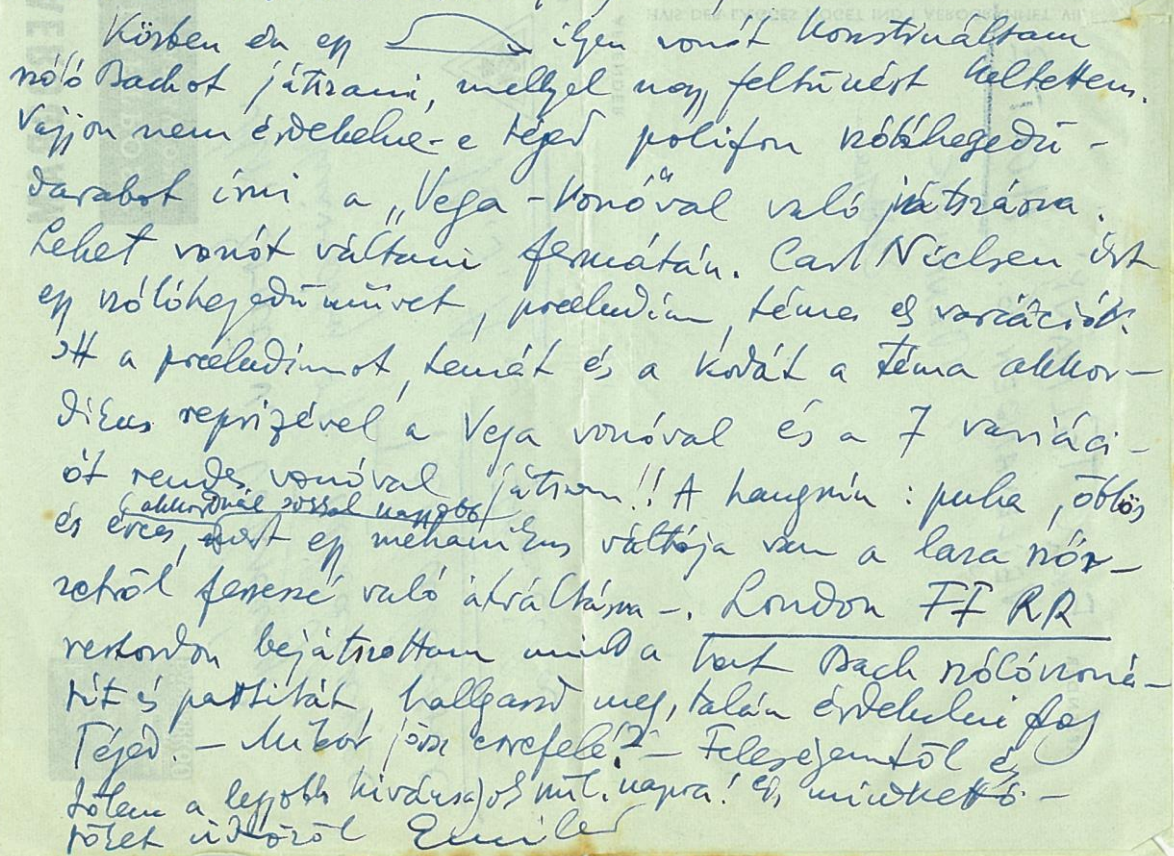 Közben én egy ilyen vonót konstruáltam
szóló Bachot játszani, mellyel nagy feltűnést keltettem.
Vajjon nem érdekelne-e téged polifon szólóhegedű-
darabot írni a „Vega-Vonó"val való játszásra.
Lehet vonót váltani fermátán. Carl Nielsen írt
egy szólóhegedűművet, praeludium, téma és variációk.
Itt a praeludiumot, témát és a kodát a téma akkor-
dikus reprizével a Vega vonóval és a 7 variáci-
ót rendes vonóval játszom!! A hangszín: puha, öblös
(akkordnál sokkal nagyobb)
és érces, mert egy mechanikus váltója van a laza szőr-
zetről feszessé való átváltásra-. London FFRR
rekordon bejátszottam mind a hat Bach szólószoná-
tát és partitát, hallgasd meg, talán érdekelni fog
Téged. – Mikor jössz errefelé? – Feleségemtől és
tőlem a legjobb kivánságok szül. napra! És mindkettő-
töket üdvözöl Emil